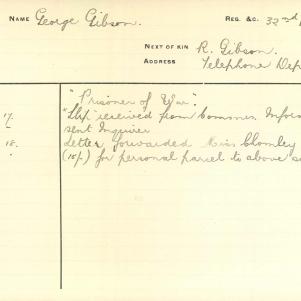 NAME George Gibson. REG. &C. 32nd
NEXT OF KIN R. Gibson.
ADDRESS Telephone Dep
"Prisoner of War".
17. received from Common
sent Inquirer
18. Letter forwarded Miss Chomley
(10/-) for personal parcel to above